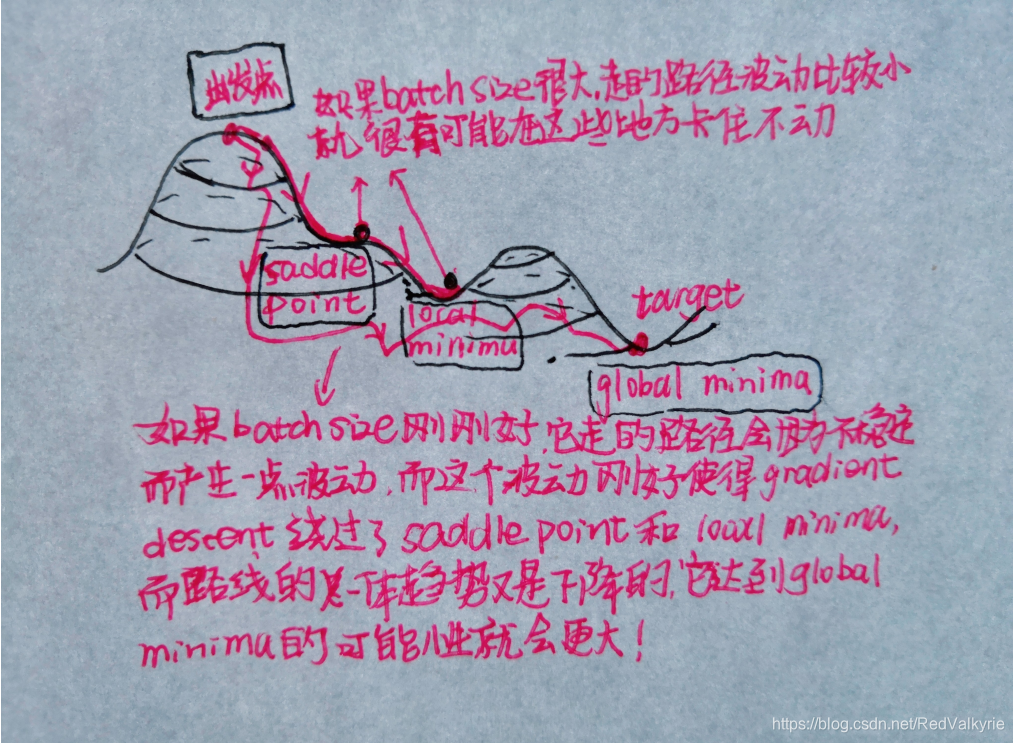 出发点
如果batch size很大,走的路径波动比较小
就很有可能在这些地方卡住不动
saddle
point
local
minima
target
global minima
如果batch size刚刚好,它走的路径会因为不稳定
而产生一点波动,而这个波动刚好使得gradient
descent绕过了saddle point和local minima,
而路线的总体趋势又是下降的,它达到global
minima的可能性就会更大!
https://blog.csdn.net/RedValkyrie